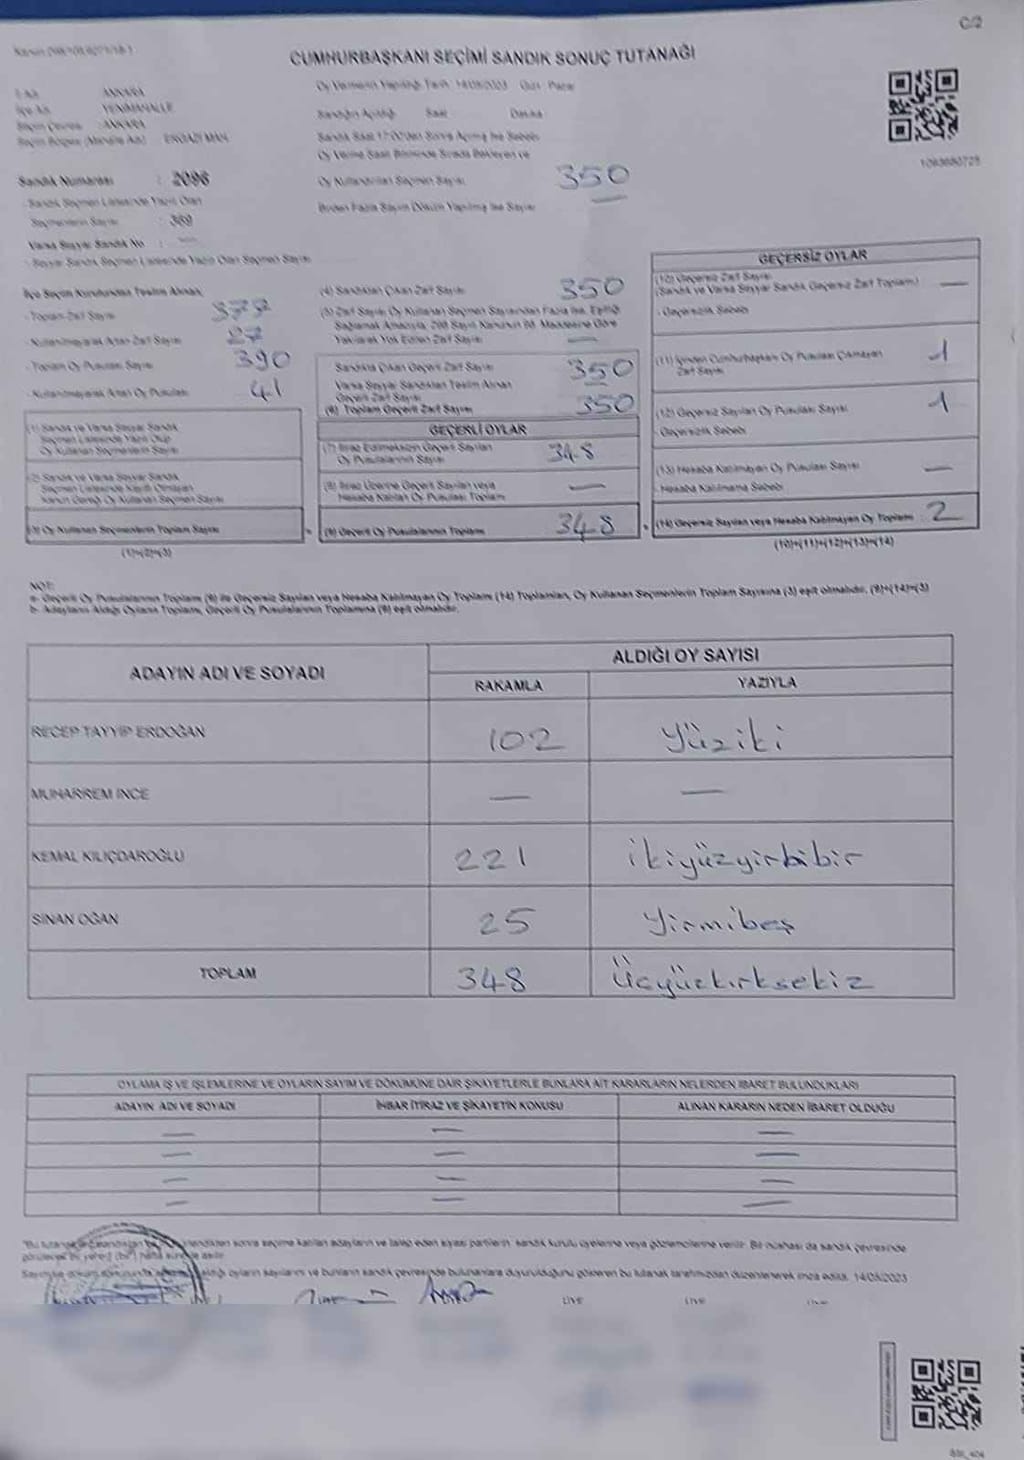 C/2
CUMHURBAŞKANI SEÇİMİ SANDIK SONUÇ TUTANAĞI
Oy Vermenin Yapıldığı Tarih 14/05/2023 Gün: Pazar
ANKARA
YENİMAHALLE
Seçim Çevresi : ANKARA
Seçim Bölgesi (Mahalle Adı)
Sandığın Açıldığı Saat Dakika
Sandık Saat 17:00'den Sonra Açılmış İse Sebebi
Oy Verme Saati Bitiminde Sırada Bekleyen ve
Oy Kullandırılan Seçmen Sayısı 350
Birden Fazla Sayım Döküm Yapılmış İse Sayısı
1093680725
Sandık Numarası : 2096
- Sandık Seçmen Listesinde Yazılı Olan
Seçmenlerin Sayısı : 369
Varsa Seyyar Sandık No : —
- Seyyar Sandık Seçmen Listesinde Yazılı Olan Seçmen Sayısı
İlçe Seçim Kurulundan Teslim Alınan;
- Toplam Zarf Sayısı 377
- Kullanılmayarak Artan Zarf Sayısı 27
- Toplam Oy Pusulası Sayısı 390
- Kullanılmayarak Artan Oy Pusulası 41
(1) Sandık ve Varsa Seyyar Sandık
Seçmen Listesinde Yazılı Olup
Oy Kullanan Seçmenlerin Sayısı
(2) Sandık ve Varsa Seyyar Sandık
Seçmen Listesinde Kayıtlı Olmayan
Kanun Gereği Oy Kullanan Seçmen Sayısı
(3) Oy Kullanan Seçmenlerin Toplam Sayısı
(1)+(2)=(3)
(4) Sandıktan Çıkan Zarf Sayısı 350
(5) Zarf Sayısı Oy Kullanan Seçmen Sayısından Fazla İse, Eşitliği
Sağlamak Amacıyla, 298 Sayılı Kanunun 98. Maddesine Göre
Yakılarak Yok Edilen Zarf Sayısı —
Sandıkta Çıkan Geçerli Zarf Sayısı 350
Varsa Seyyar Sandıktan Teslim Alınan
Geçerli Zarf Sayısı
(6) Toplam Geçerli Zarf Sayısı 350
GEÇERLİ OYLAR
(7) İtiraz Edilmeksizin Geçerli Sayılan
Oy Pusulalarının Sayısı 348
(8) İtiraz Üzerine Geçerli Sayılan veya
Hesaba Katılan Oy Pusulası Toplamı —
(9) Geçerli Oy Pusulalarının Toplamı 348
GEÇERSİZ OYLAR
(10) Geçersiz Zarf Sayısı
(Sandık ve Varsa Seyyar Sandık Geçersiz Zarf Toplamı) —
- Geçersizlik Sebebi
(11) İçinden Cumhurbaşkanı Oy Pusulası Çıkmayan
Zarf Sayısı 1
(12) Geçersiz Sayılan Oy Pusulası Sayısı 1
- Geçersizlik Sebebi
(13) Hesaba Katılmayan Oy Pusulası Sayısı —
- Hesaba Katılmama Sebebi
(14) Geçersiz Sayılan veya Hesaba Katılmayan Oy Toplamı 2
(10)+(11)+(12)+(13)=(14)
NOT:
a- Geçerli Oy Pusulalarının Toplamı (9) ile Geçersiz Sayılan veya Hesaba Katılmayan Oy Toplamı (14) Toplamları, Oy Kullanan Seçmenlerin Toplam Sayısına (3) eşit olmalıdır. (9)+(14)=(3)
b- Adayların Aldığı Oyların Toplamı, Geçerli Oy Pusulalarının Toplamına (9) eşit olmalıdır.
ADAYIN ADI VE SOYADI ALDIĞI OY SAYISI
RAKAMLA YAZIYLA
RECEP TAYYİP ERDOĞAN 102 Yüziki
MUHARREM İNCE — —
KEMAL KILIÇDAROĞLU 221 ikiyüzyirbibir
SİNAN OĞAN 25 Yirmibeş
TOPLAM 348 Üçyüzkırksekiz
OYLAMA İŞ VE İŞLEMLERİNE VE OYLARIN SAYIM VE DÖKÜMÜNE DAİR ŞİKAYETLERLE BUNLARA AİT KARARLARIN NELERDEN İBARET BULUNDUKLARI
ADAYIN ADI VE SOYADI İHBAR İTİRAZ VE ŞİKAYETİN KONUSU ALINAN KARARIN NEDEN İBARET OLDUĞU
— — —
— — —
— — —
— — —
sonra seçime katılan adayların ve talep eden siyasi partilerin sandık kurulu üyelerine veya gözlemcilerine verilir. Bir nüshası da sandık çevresinde
oyların sayılarını ve bunların sandık çevresinde bulunanlara duyurulduğunu gösteren bu tutanak tarafımızdan düzenlenerek imza edildi. 14/05/2023
ÜYE ÜYE ÜYE